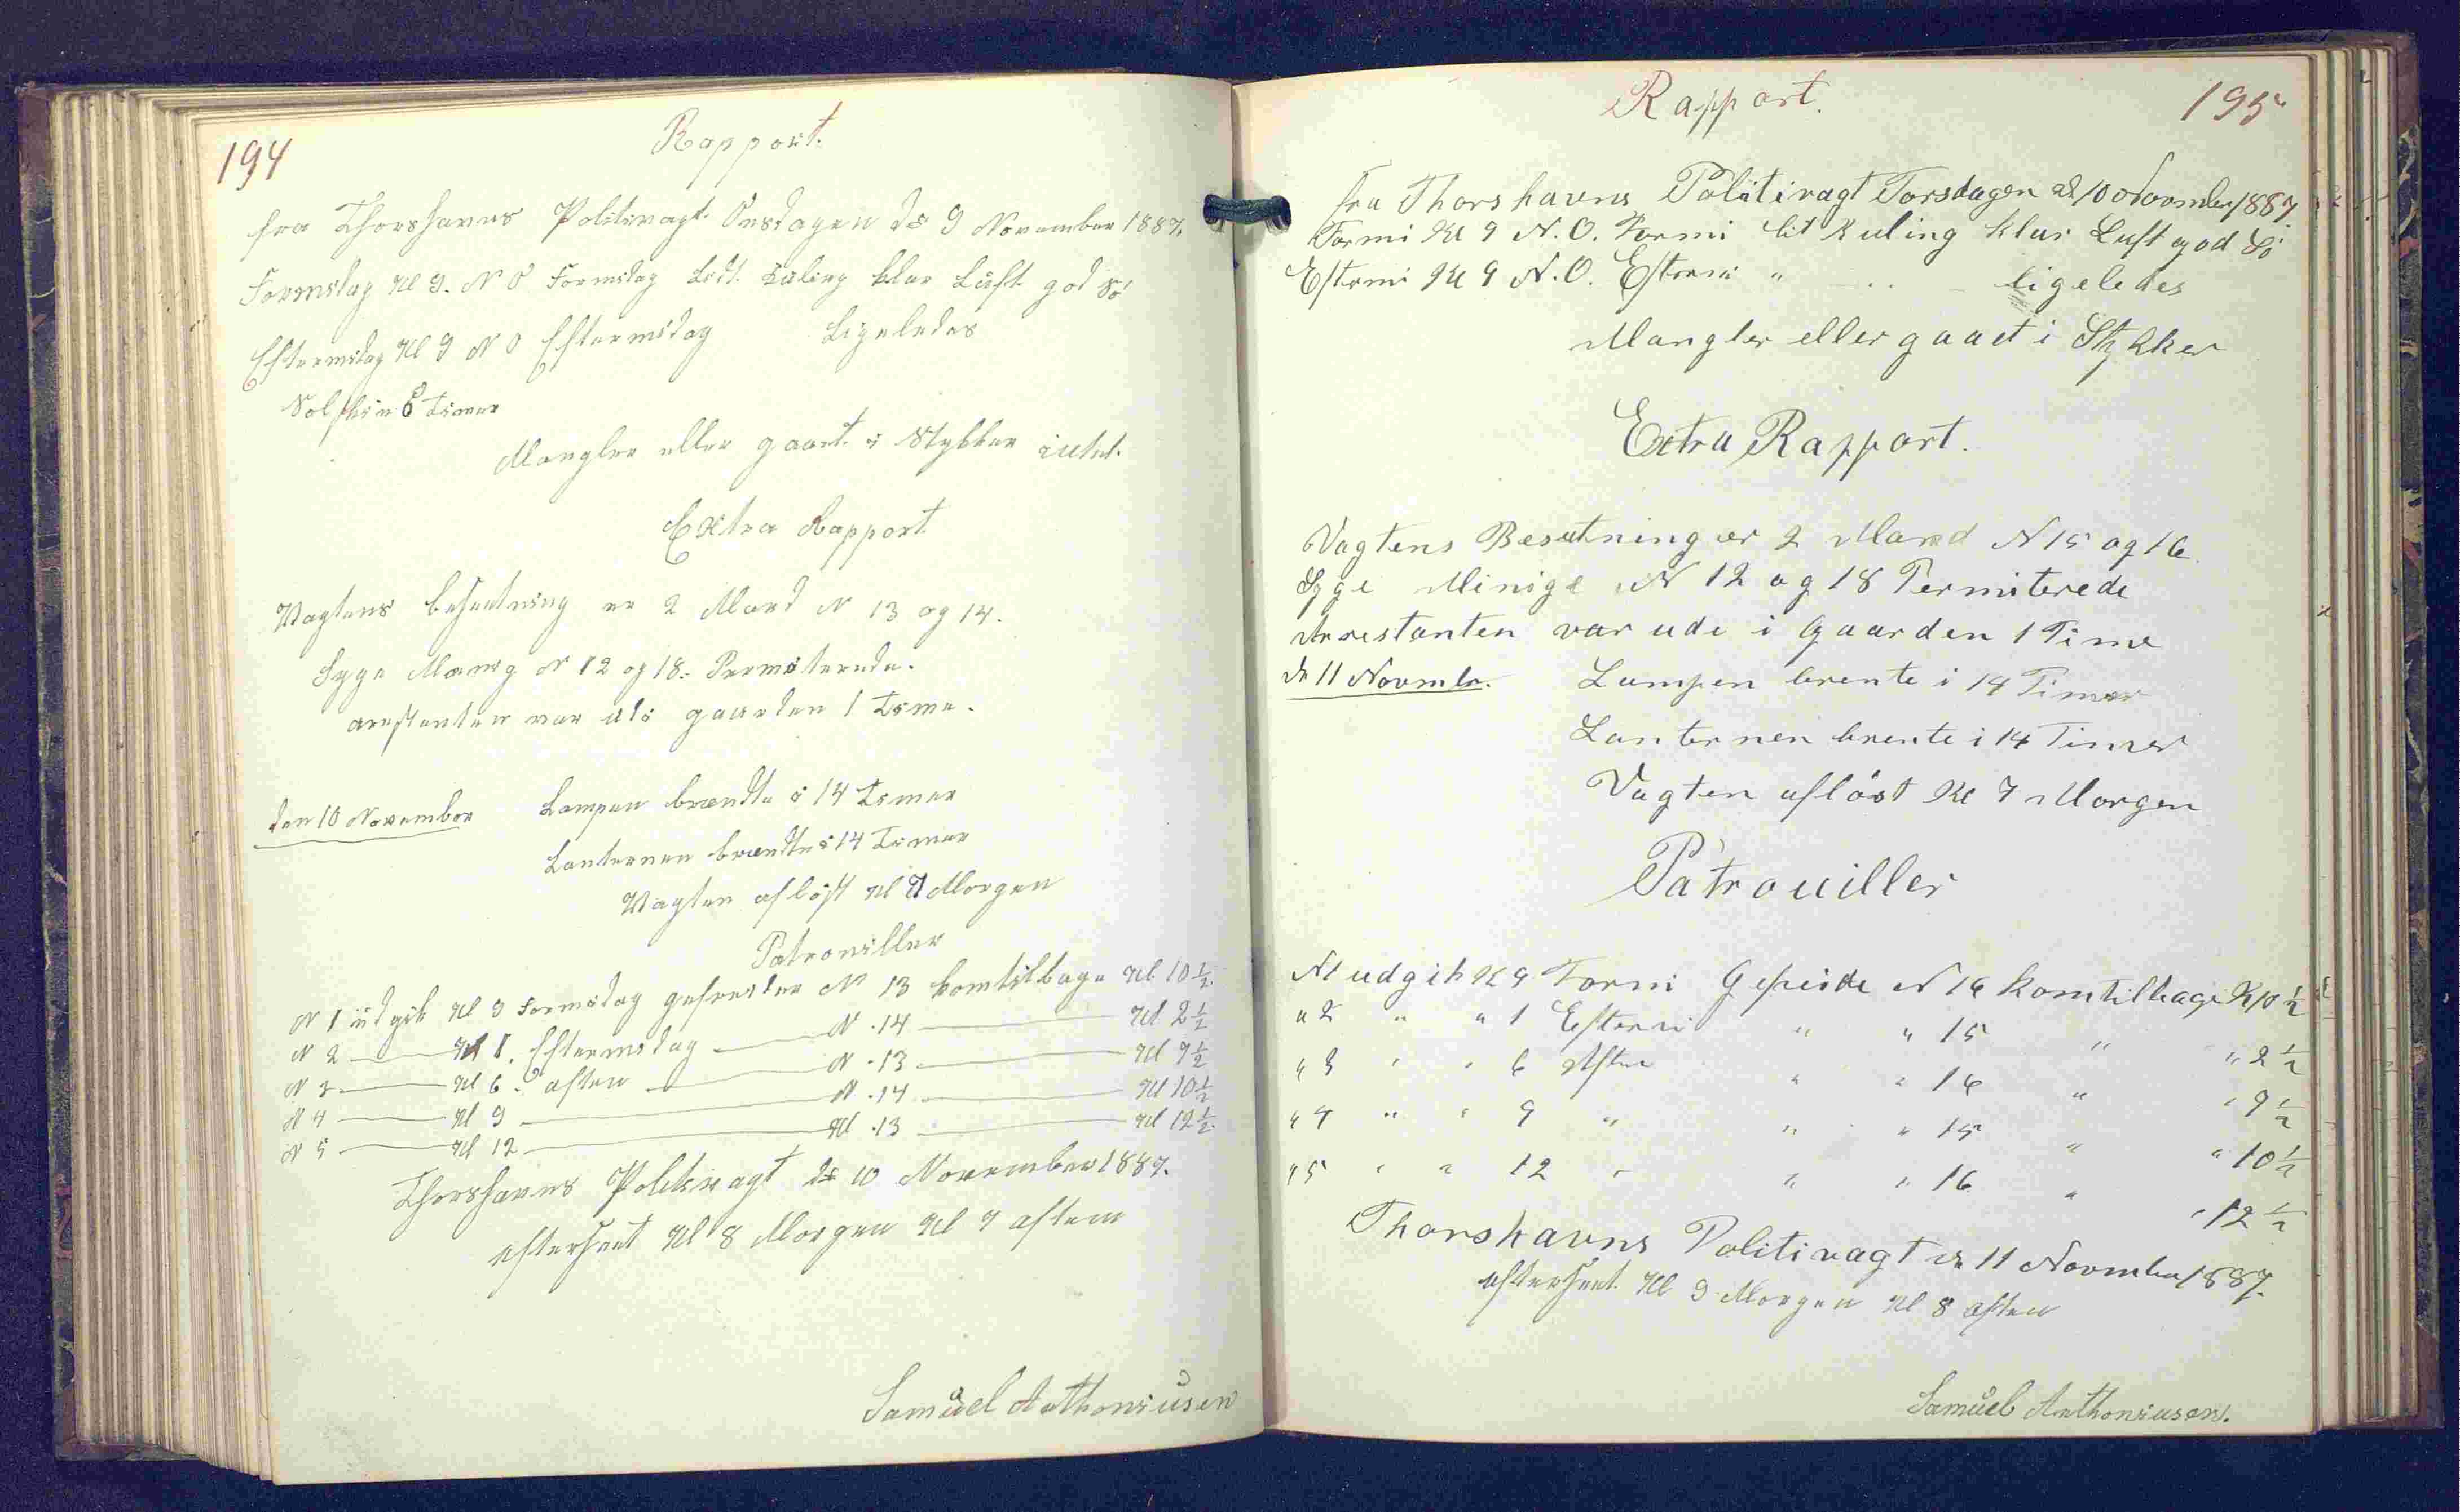 194
Rapport.
fra Thorshavns Politivagt. Onsdagen ds 9 November 1887.
Formidag Kl 9. N O Formidag Lidt. Kuling klar Luft god Sö
Eftermidag Kl 9 N O Eftermidag Ligeledes
Solskin 6 Timer
Mangler eller gaaet i Stykker intet.
Extra Rapport
Vagtens besætning er 2 Mand N 13 og 14.
Syge Menig N 12 og 18. Permiterede.
arestanten var ude gaarden 1 Time.
den 10 November Lampen brændte i 14 Timer
Lanternen brændte i 14 Timer
Vagten aflöst Kl 7 Morgen
Patrouiller
N 1 udgik Kl 9 Formidag gefreider N 13 komtilbage Kl 10 1/2
N 2 — Kl 1. Eftermidag — N. 14 — Kl 2 1/2
N 3 — Kl 6. aften — N. 13 — Kl 7 1/2
N 4 — Kl 9 — N. 14 — Kl 10 1/2
N 5 — Kl 12 — Kl. 13 — Kl 12 1/2.
Thorshavns Politivagt ds 10 November 1887.
efterseet Kl 8 Morgen Kl 7 aften
Samuel Anthoniusen
195
Rapport.
Fra Thorshavns Politivagt Torsdagen d 10 Novomber 1887
Formi Kl 9 N. O. Formi lit Kuling Klar Luft god Sö
Eftermi Kl 9 N. O. Eftermi " ligeledes
Mangler eller gaaet i Stykker
Extra Rapport.
Vagtens Besætning er 2 Mand N 15 og 16
Syge Minige N 12 og 18 Permiterede
Arrestanten var ude i Gaarden 1 Time
d 11 Novmbr. Lampen brente i 14 Timer
Lanternen brente i 14 Timer
Vagten aflöst Kl 7 Morgen
Patrouiller
N1 udgik Kl 9 Formi Gefreide N 16 komtilbage Kl 10 1/2
" 2 " " 1 Eftermi " " 15 " " 2 1/2
" 3 " " 6 Aften " " 16 " " 7 1/2
" 4 " " 9 " " " 15 " " 10 1/2
" 5 " " 12 " " " 16 " " 12 1/2
Thorshavns Politivagt d 11 Novmber 1887.
efterseet. Kl 9 Morgen Kl 8 aften
Samuel Anthoniusen.